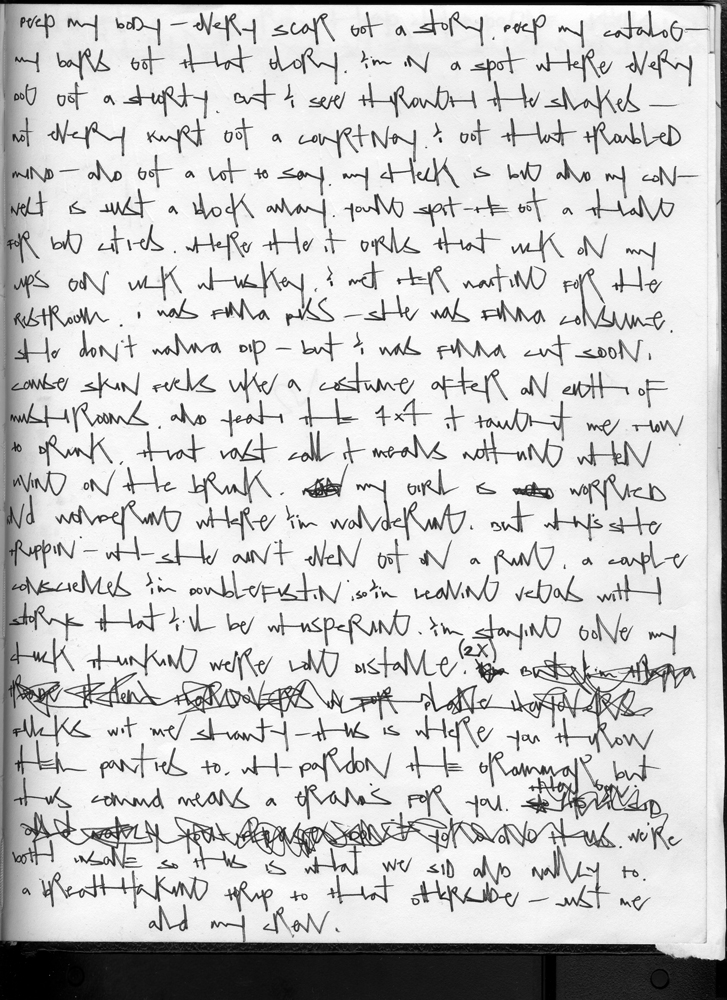 peep my body – every scar got a story. peep my catalog –
my bars got that glory. i'm in a spot where every
dog got a shorty. but i see through the shakes –
not every kurt got a courtney. i got that troubled
mind – and got a lot to say. my check is big and my con-
nect is just a block away. young spit-te got a thang
for big cities. where the it girls that lick on my
lips gon lick whiskey. i met her waiting for the
restroom. i was finna piss – she was finna consume.
she don't wanna dip – but i was finna cut soon.
cause skin feels like a costume after an eighth of
mushrooms. and yeah the 4x4 it taught me how
to drink. that last call it means nothing when
living on the brink. my girl is worried
and wondering where i'm wandering. but why's she
trippin – wh- she ain't even got on a ring. a couple
consciences i'm doublefistin so i'm leaving vegas with
stories that i'll be whispering. i'm staying gone my
chick thinking we're long distance. (2x)
fucks wit me shawty – this is where you throw
them panties to. wh- pardon the grammar but
this commd means a grands for you. they say
we're
both insane so this is what we sid and nancy to.
a breathtaking trip to that otherside – just me
and my crew.